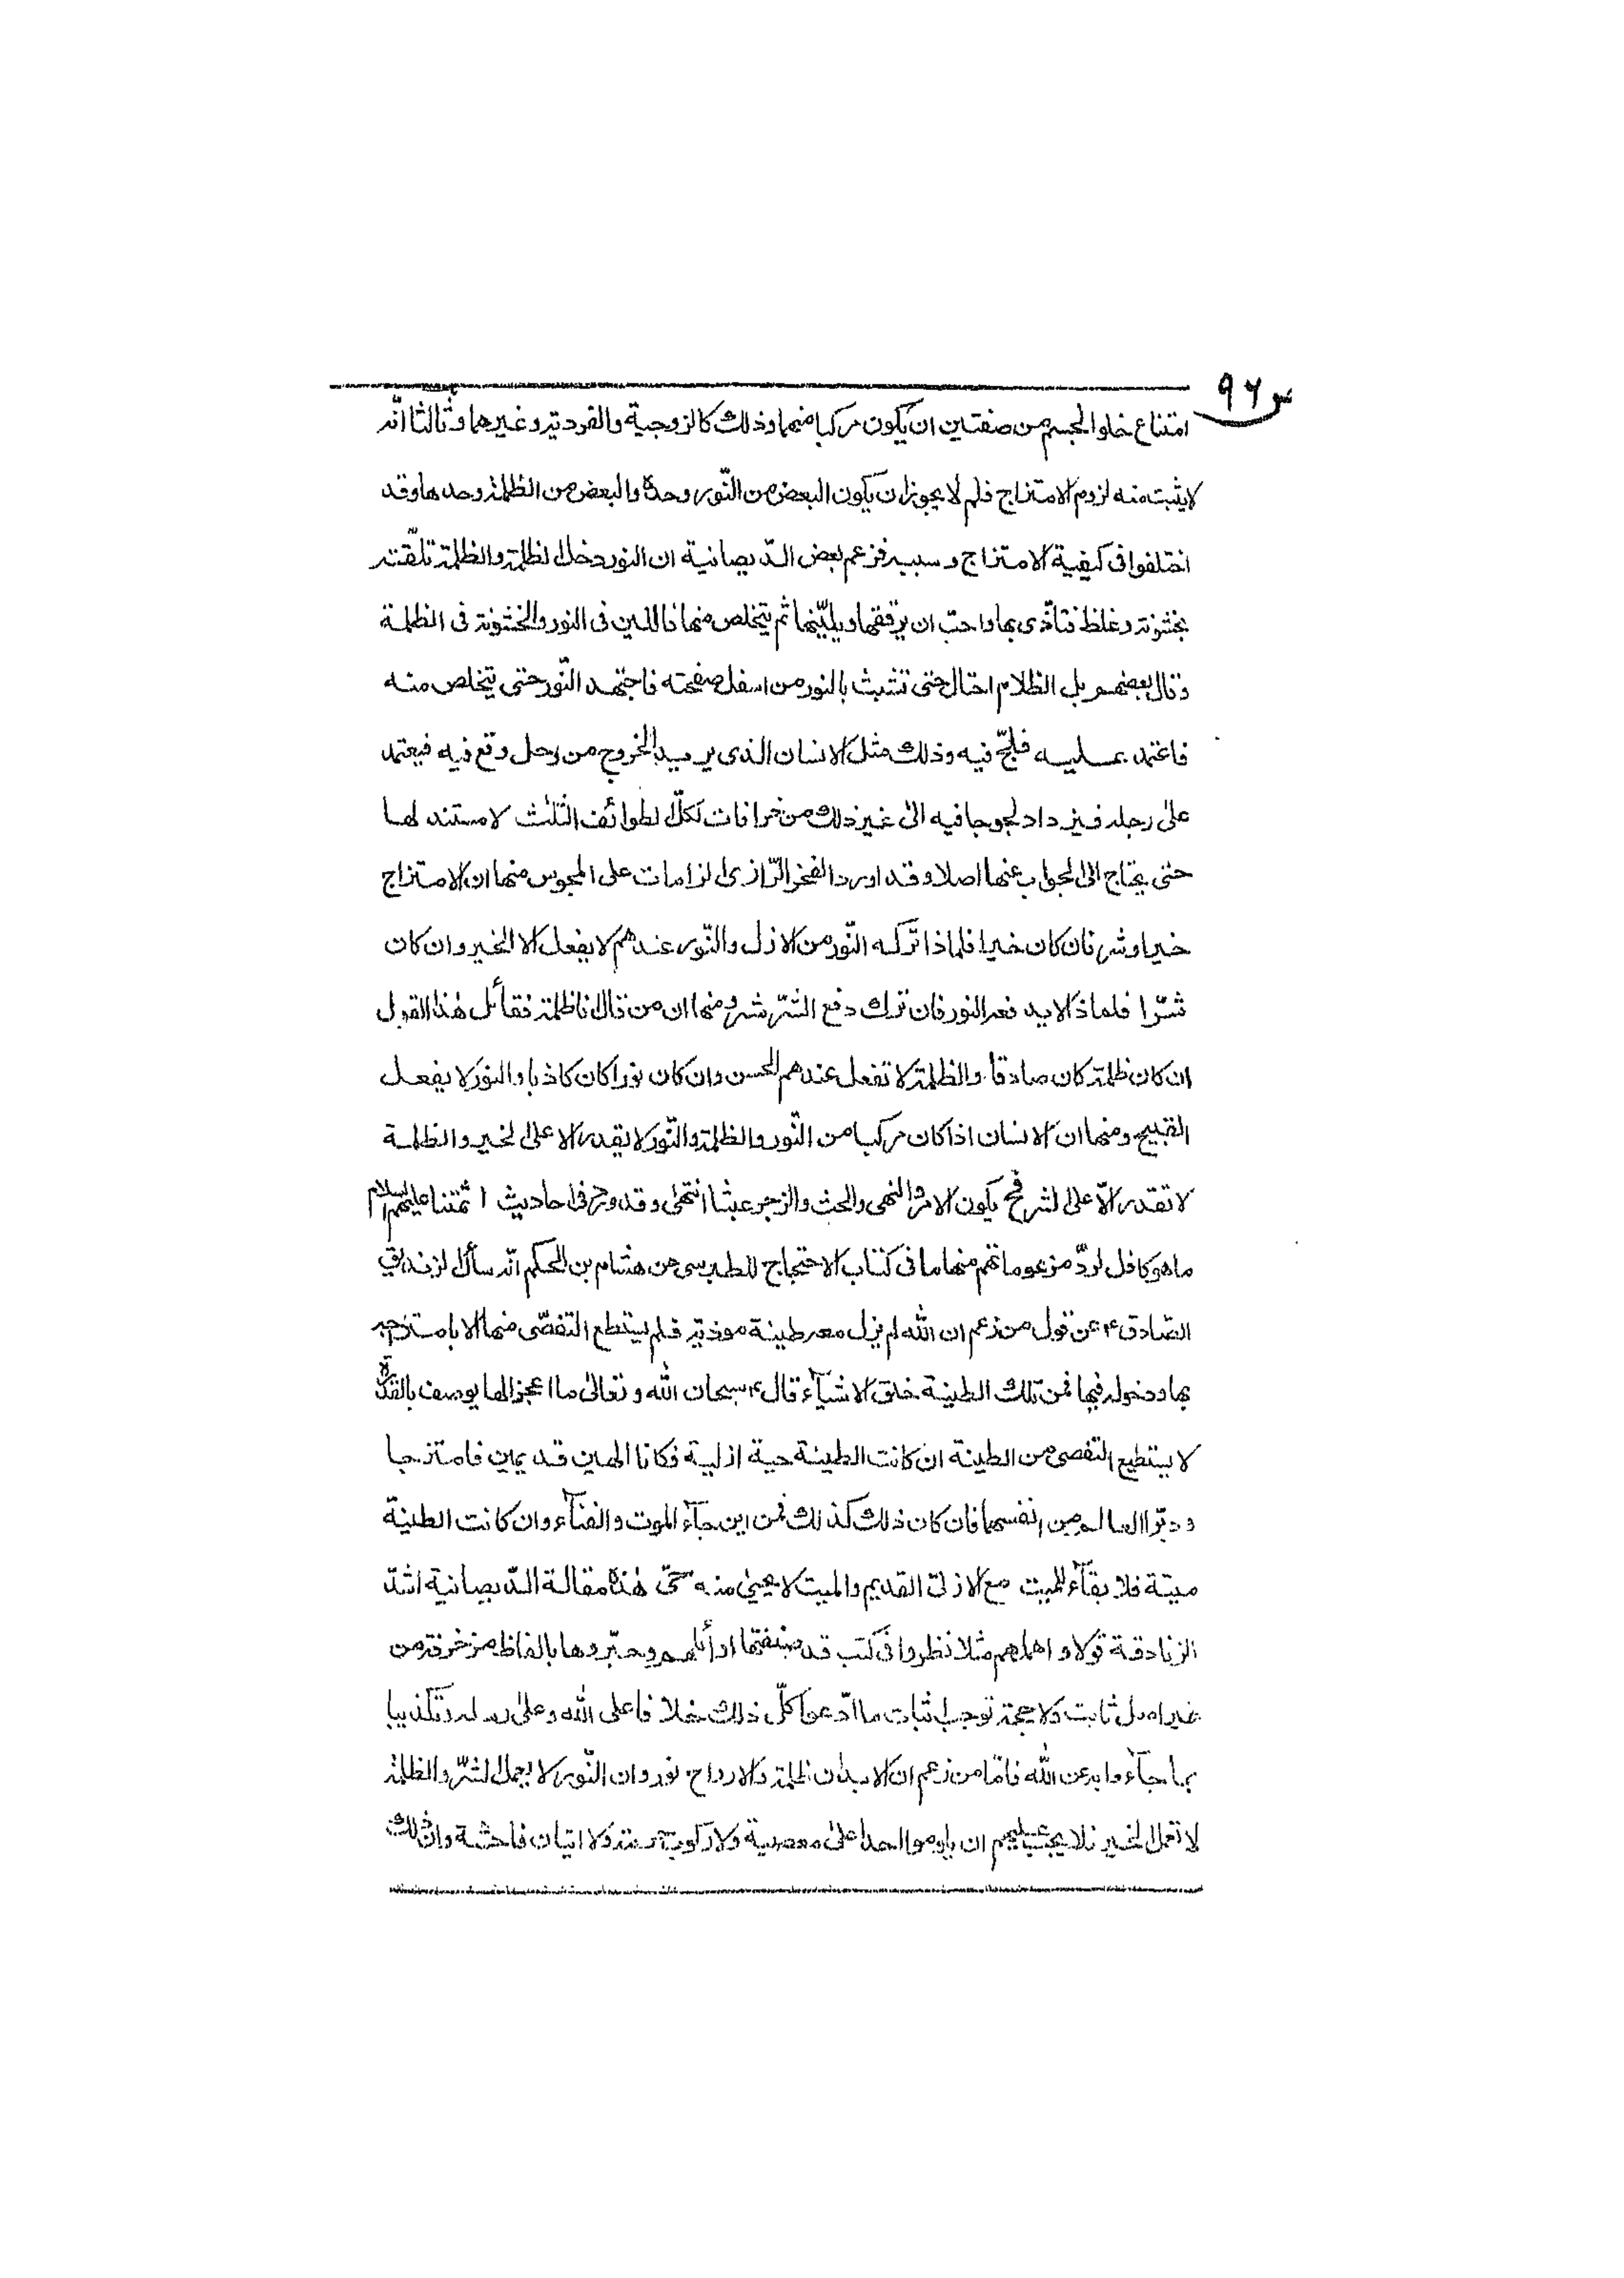 س ٩٦
امتناع خلو الجسم من صفتين ان يكون مركبا منهما وذلك كالزوجية والفردية وغيرهما وثالثا انّه
لا يثبت منه لزوم الامتزاج فلم لا يجوز ان يكون البعض من النّور وحده والبعض من الظلمة وحدها وقد
اختلفوا فى كيفية الامتزاج وسببه فزعم بعض الدّيصانية ان النور دخل الظلمة والظلمة تلقته
بخشونة وغلظ فتاذّى بها واحبّ ان يرققها ويليّنها ثم يتخلص منها فاللين فى النور والخشونة فى الظلمة
وقال بعضهم بل الظلام احتال حتى تشبث بالنور من اسفل صفحته فاجتهد النّور حتى يتخلص منه
فاعتمد عليه فلجّ فيه وذلك مثل الانسان الذى يريد الخروج من وحل وقع فيه فيعتمد
على رجله فيزداد لجوجا فيه الى غير ذلك من خرافات لكلّ الطوائف الثلث لا مستند لها
حتى يحتاج الى الجواب عنها اصلا وقد اورد الفخر الرّازى الزامات على المجوس منها ان الامتزاج
خير او شر فان كان خيرا فلماذا تركه النّور من الازل والنّور عندهم لا يفعل الا الخير وان كان
شرّا فلماذا لا يدفعه النور فان ترك دفع الشرّ شر ومنها ان من قال انا ظلمة فقائل هذا القول
ان كان ظلمة كان صادقا والظلمة لا تفعل عندهم الحسن وان كان نورا كان كاذبا والنور لا يفعل
القبيح ومنها ان الانسان اذا كان مركبا من النّور والظلمة والنّور لا يقدر الا على الخير والظلمة
لا تقدر الّا على الشر فح يكون الامر والنهى والحث والزجر عبثا انتهى وقد ورد فى احاديث ائمتنا عليهم السلام
ما هو كاف لردّ مزعوماتهم منها ما فى كتاب الاحتجاج للطبرسى عن هشام بن الحكم انّه سأل الزنديق
الصّادق ع عن قول من زعم ان الله لم يزل معه طينة موذية فلم يستطع التفصّى منها الا بامتزاجه
بها ودخوله فيها فمن تلك الطينة خلق الاشيآء قال ع سبحان الله وتعالى ما اعجز الها يوصف بالقدرة
لا يستطيع التفصى من الطينة ان كانت الطينة حية ازلية فكانا الهين قديمين فامتزجا
ودبّرا العالم من انفسهما فان كان ذلك كذلك فمن اين جآء الموت والفنآء وان كانت الطينة
ميتة فلا بقآء للميت مع الازلى القديم والميت لا يجيئ منه حىّ هذه مقالة الدّيصانية اشدّ
الزنادقة قولا واهملهم مثلا نظروا فى كتب قد صنفتها اوائلهم وحبّروها بالفاظ مزخرفة من
غير اصل ثابت ولا حجة توجب اثبات ما ادّعوا كلّ ذلك خلافا على الله وعلى رسله وتكذيبا
بما جآءوا به عن الله فامّا من زعم ان الابدان ظلمة والارواح نور وان النّور لا يعمل الشرّ والظلمة
لا تعمل الخير فلا يجب عليهم ان يلوموا احدا على معصية ولا ركوب حرمة ولا اتيان فاحشة وان ذلك